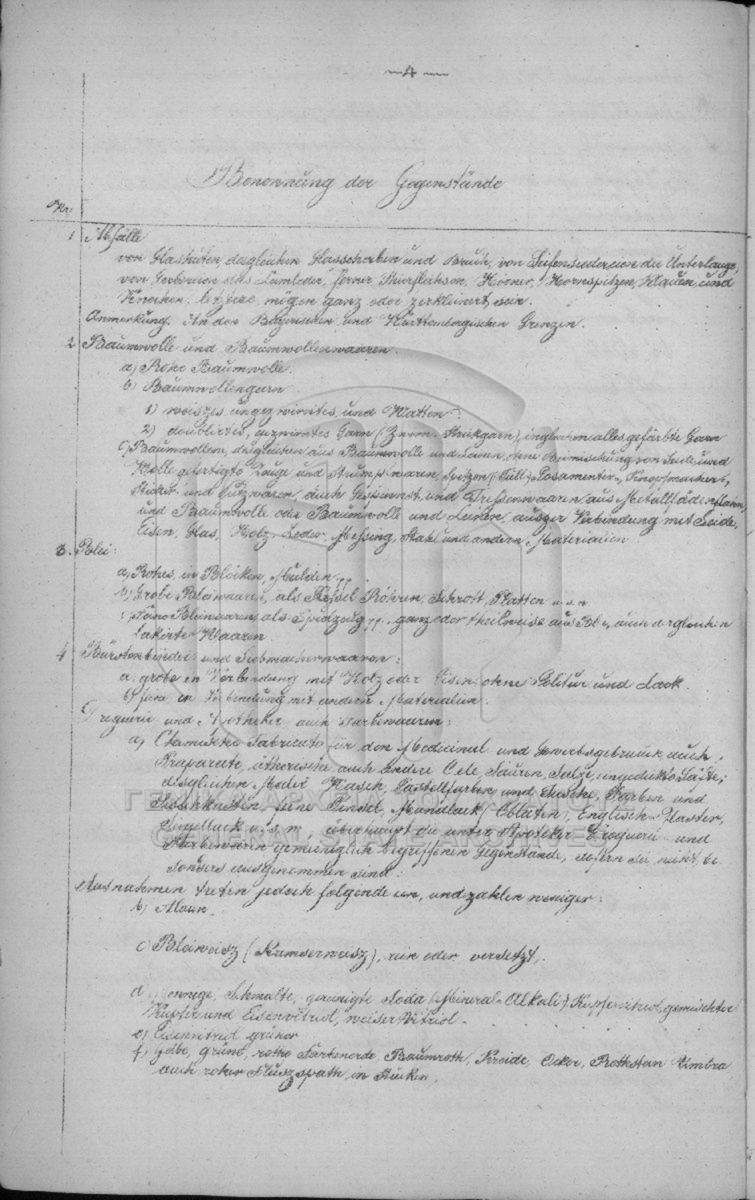 —4—
Benennung der Gegenstände
Nr.
1 Abfälle
von Glashütten, desgleichen Glasscherben und Bruch, von Seifensiedereien die Unterlauge,
von Gerbereien das Leimleder, ferner Thierflechsen, Hörner, Hornspitzen, Klauen und
Knochen, letztere mögen ganz oder zerkleinert sein.
Anmerkung. An den Bayrischen und Württembergischen Grenzen.
2 Baumwolle und Baumwollenwaaren.
a) Rohe Baumwolle.
b) Baumwollengarn
1) weiszes ungezwirntes, und Watten:
2) doublirtes, gezwirntes Garn (Zwirn, Strickgarn), ingleichen alles gefärbte Garn
c) Baumwollene, desgleichen aus Baumwolle und Leinen, ohne Beimischung von Seide und
Wolle gefertigte Zeuge und Strumpfwaaren, Spitzen (Tüll) Posamentier-, Knopfmacher-,
Sticker- und Putzwaaren, auch Gespinnst und Tressenwaaren aus Metallfäden (Lahn)
und Baumwolle oder Baumwolle und Leinen, auszer Verbindung mit Seide,
Eisen, Glas, Holz, Leder, Messing, Stahl und andern Materialien
3. Blei:
a) Rohes, in Blöcken, Mulden
b) Grobe Bleiwaaren, als Kessel, Röhren, Schrott, Platten u.s.w
c) Feine Bleiwaaren, als Spielzeug, ganz oder theilweise aus Blei, auch dergleichen
lakirte Waaren
4 Bürstenbinder und Siebmacherwaaren:
a. grobe in Verbindung mit Holz oder Eisen ohne Politur und Lack.
b) feine in Verbindung mit andern Materialien.
5 Droguerie und Apotheker auch Farbewaaren:
a) Chemische Fabricate für den Medicinal und Gewerbsgebrauch, auch
Präparate, ätherische auch andere Oele, Säuren, Salze, eingedickte Säfte;
desgleichen Maler Wasch, Pastellfarben und Tusche, Farben und
Tuschkasten, feine Pinsel, Mundlack (Oblaten), Englisch Pflaster,
Siegellack u.s.w., überhaupt die unter Apotheker, Droguerie und
Farbewaaren gemeiniglich begriffenen Gegenstände, sofern sie nicht be
sonders ausgenommen sind:
Ausnahmen treten jedoch folgende ein, und zahlen weniger:
b) Alaun.
c) Bleiweisz (Kremserweisz), rein oder versetzt,
d Mennige, Schmalte, gereinigte Soda (Mineral-Alkali) Kupfervitriol, gemischter
Kupfer und Eisenvitriol, weiser Vitriol.
e) Eisenvitriol grüner
f) Gelbe, grüne, rothe Farbenerde, Braunroth, Kreide, Ocker, Rothstein Umbra
auch roher Fluszspath in Stücken.
GENERAL STATE ARCHIVES